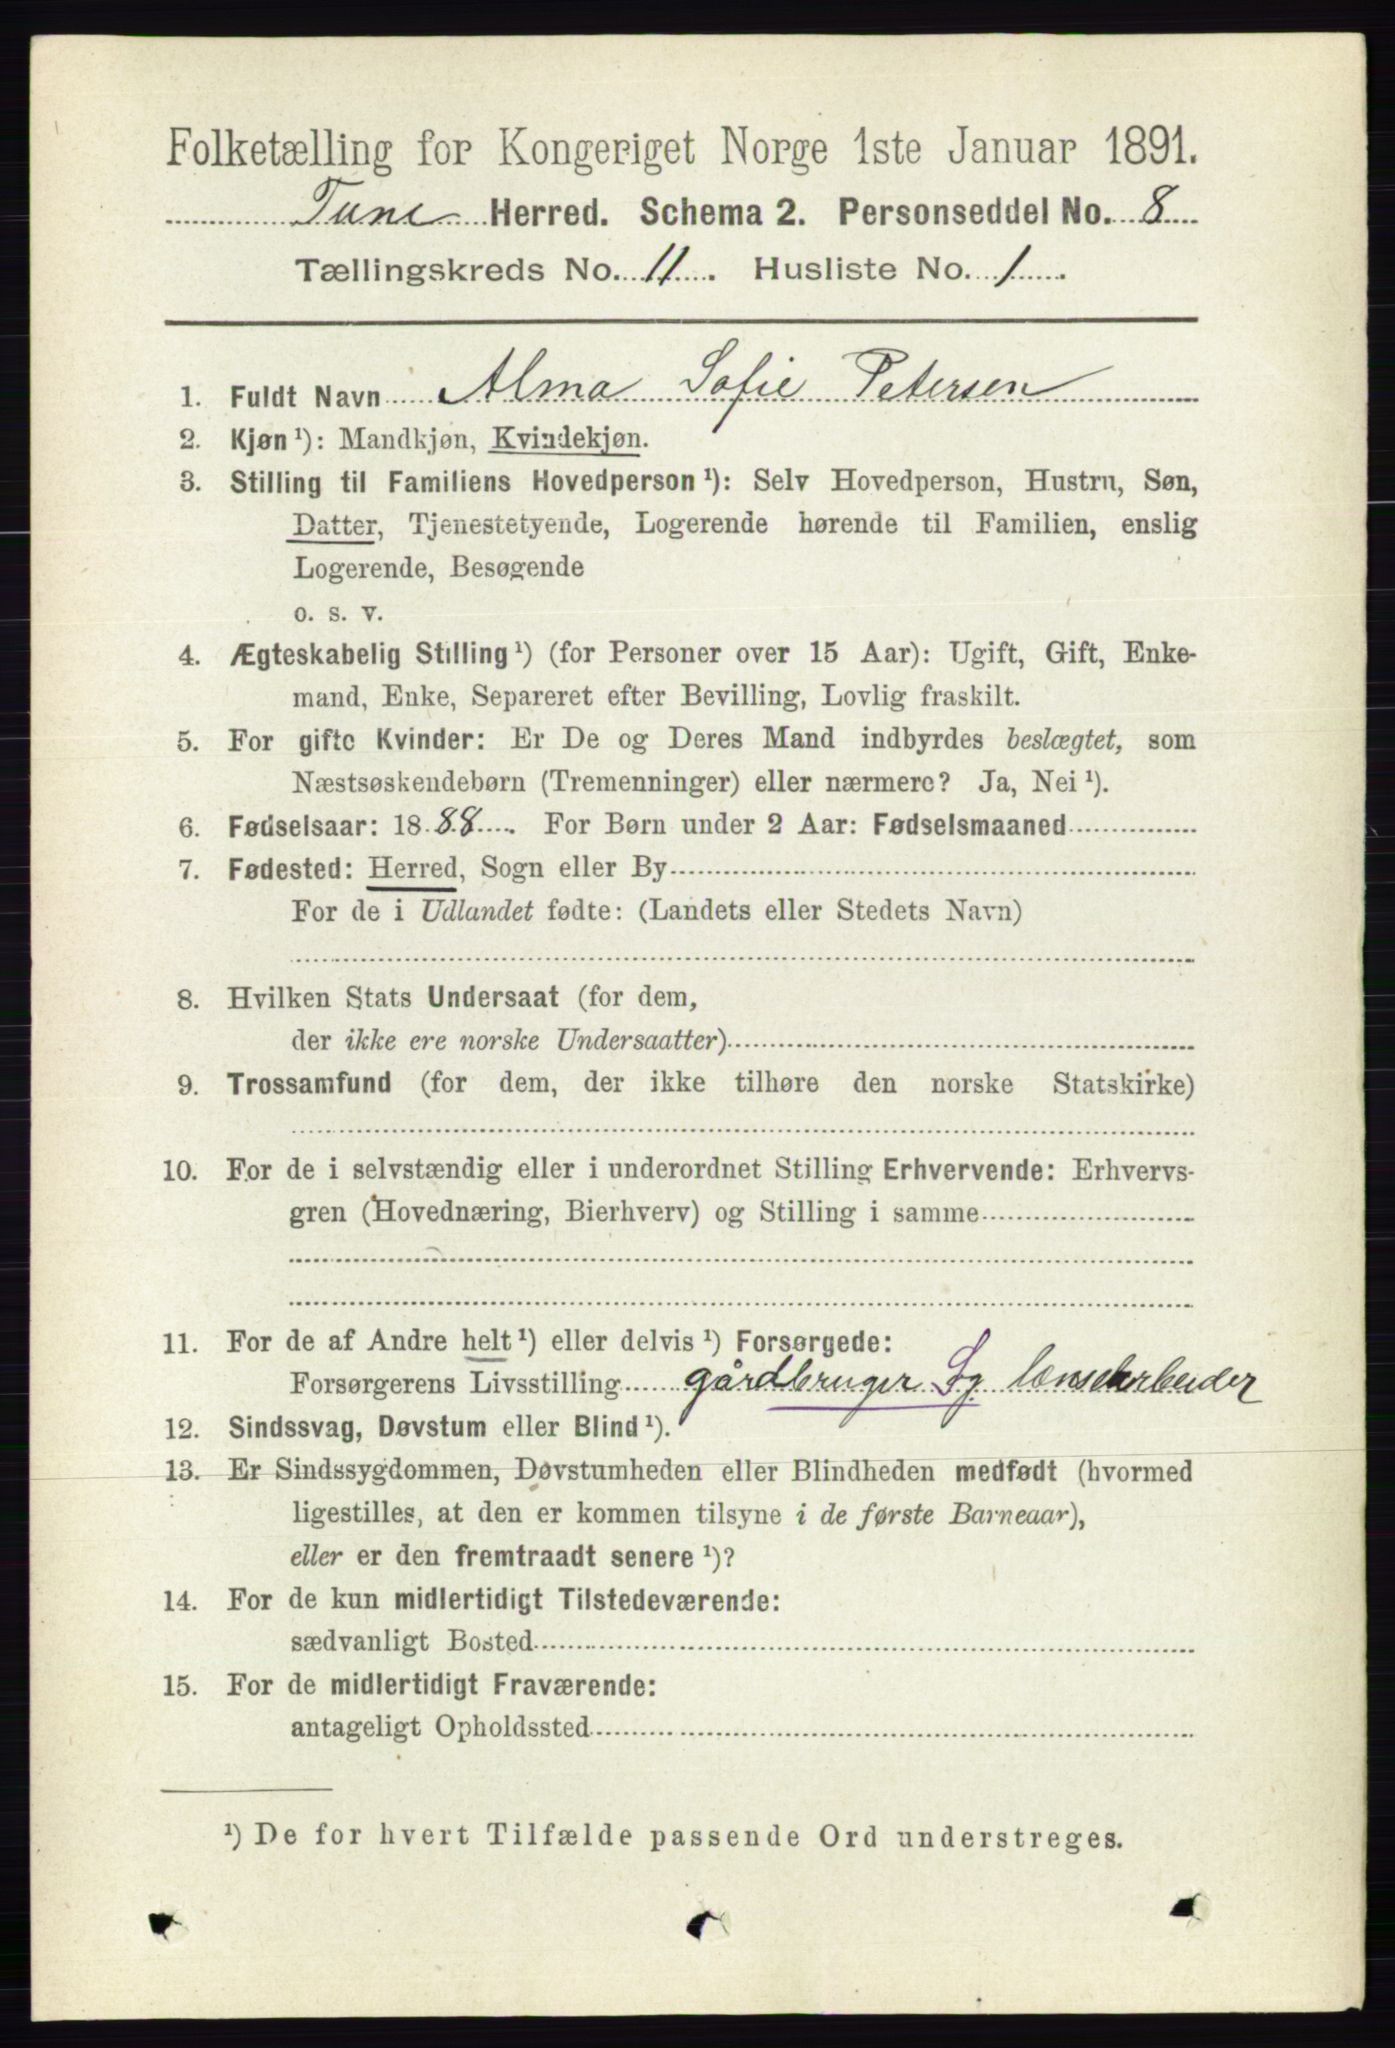 Folketælling for Kongeriget Norge 1ste Januar 1891.
Tune Herred. Schema 2. Personseddel No. 8
Tællingskreds No. 11. Husliste No. 1.
1. Fuldt Navn Alma Sofie Petersen
2. Kjøn ¹): Mandkjøn, Kvindekjøn.
3. Stilling til Familiens Hovedperson ¹): Selv Hovedperson, Hustru, Søn,
Datter, Tjenestetyende, Logerende hørende til Familien, enslig
Logerende, Besøgende
o. s. v.
4. Ægteskabelig Stilling ¹) (for Personer over 15 Aar): Ugift, Gift, Enke-
mand, Enke, Separeret efter Bevilling, Lovlig fraskilt.
5. For gifte Kvinder: Er De og Deres Mand indbyrdes beslægtet, som
Næstsøskendebørn (Tremenninger) eller nærmere? Ja, Nei ¹).
6. Fødselsaar: 1888. For Børn under 2 Aar: Fødselsmaaned
7. Fødested: Herred, Sogn eller By
For de i Udlandet fødte: (Landets eller Stedets Navn)
8. Hvilken Stats Undersaat (for dem,
der ikke ere norske Undersaatter)
9. Trossamfund (for dem, der ikke tilhøre den norske Statskirke)
10. For de i selvstændig eller i underordnet Stilling Erhvervende: Erhvervs-
gren (Hovednæring, Bierhverv) og Stilling i samme
11. For de af Andre helt ¹) eller delvis ¹) Forsørgede:
Forsørgerens Livsstilling gårdbruger Sg. lænsearbeider
12. Sindssvag, Døvstum eller Blind ¹).
13. Er Sindssygdommen, Døvstumheden eller Blindheden medfødt (hvormed
ligestilles, at den er kommen tilsyne i de første Barneaar),
eller er den fremtraadt senere ¹)?
14. For de kun midlertidigt Tilstedeværende:
sædvanligt Bosted
15. For de midlertidigt Fraværende:
antageligt Opholdssted
¹) De for hvert Tilfælde passende Ord understreges.